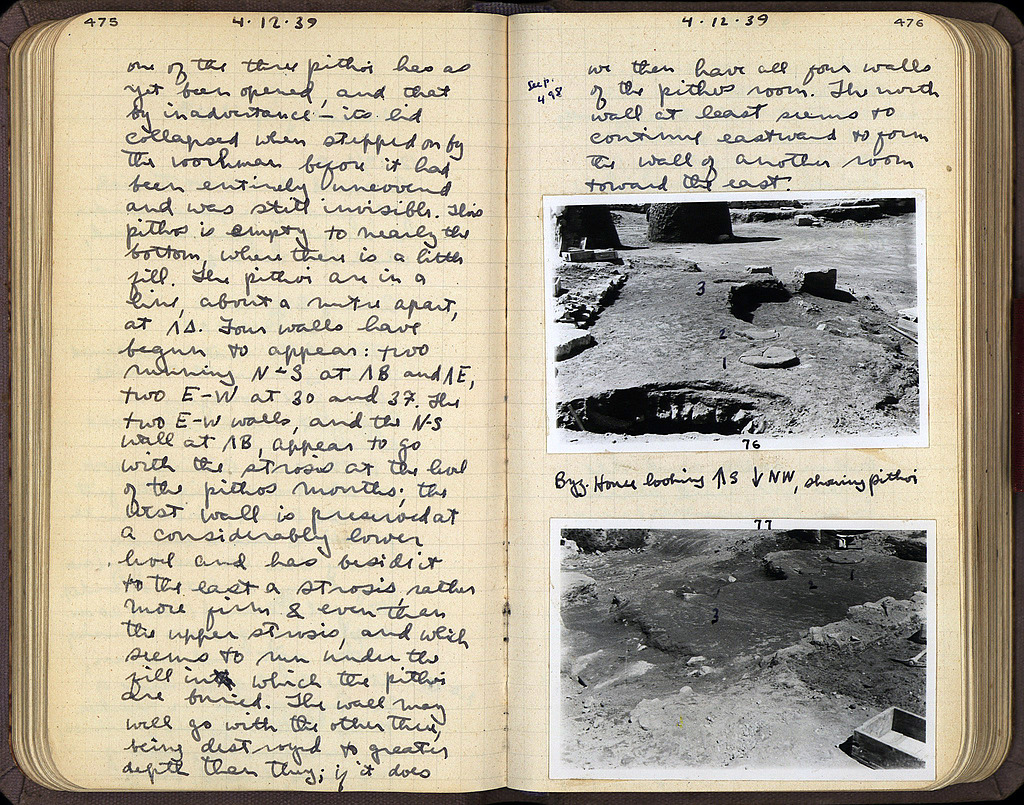 475
4·12·39
one of the three pithoi has as
yet been opened, and that
by inadvertance – its lid
collapsed when stepped on by
the workman before it had
been entirely uncovered
and was still invisible. This
pithos is empty to nearly the
bottom, where there is a little
fill. The pithoi are in a
line, about a metre apart,
at ΛΔ. Four walls have
begun to appear: two
running N-S at ΛB and ΛE,
two E-W at 30 and 37. The
two E-W walls, and the N-S
wall at ΛB, appear to go
with the strosis at the level
of the pithos mouths; the
west wall is preserved at
a considerably lower
level and has beside it
to the east a strosis, rather
more firm & even than
the upper strosis, and which
seems to run under the
fill in which the pithoi
are buried. The wall may
well go with the other three,
being destroyed to greater
depth than they; if it does
4·12·39
476
See p.
498
we then have all four walls
of the pithos room. The north
wall at least seems to
continue eastward to form
the wall of another room
toward the east.
3
2
1
76
Byz. House looking ↑S ↓NW, showing pithoi
77
1
3